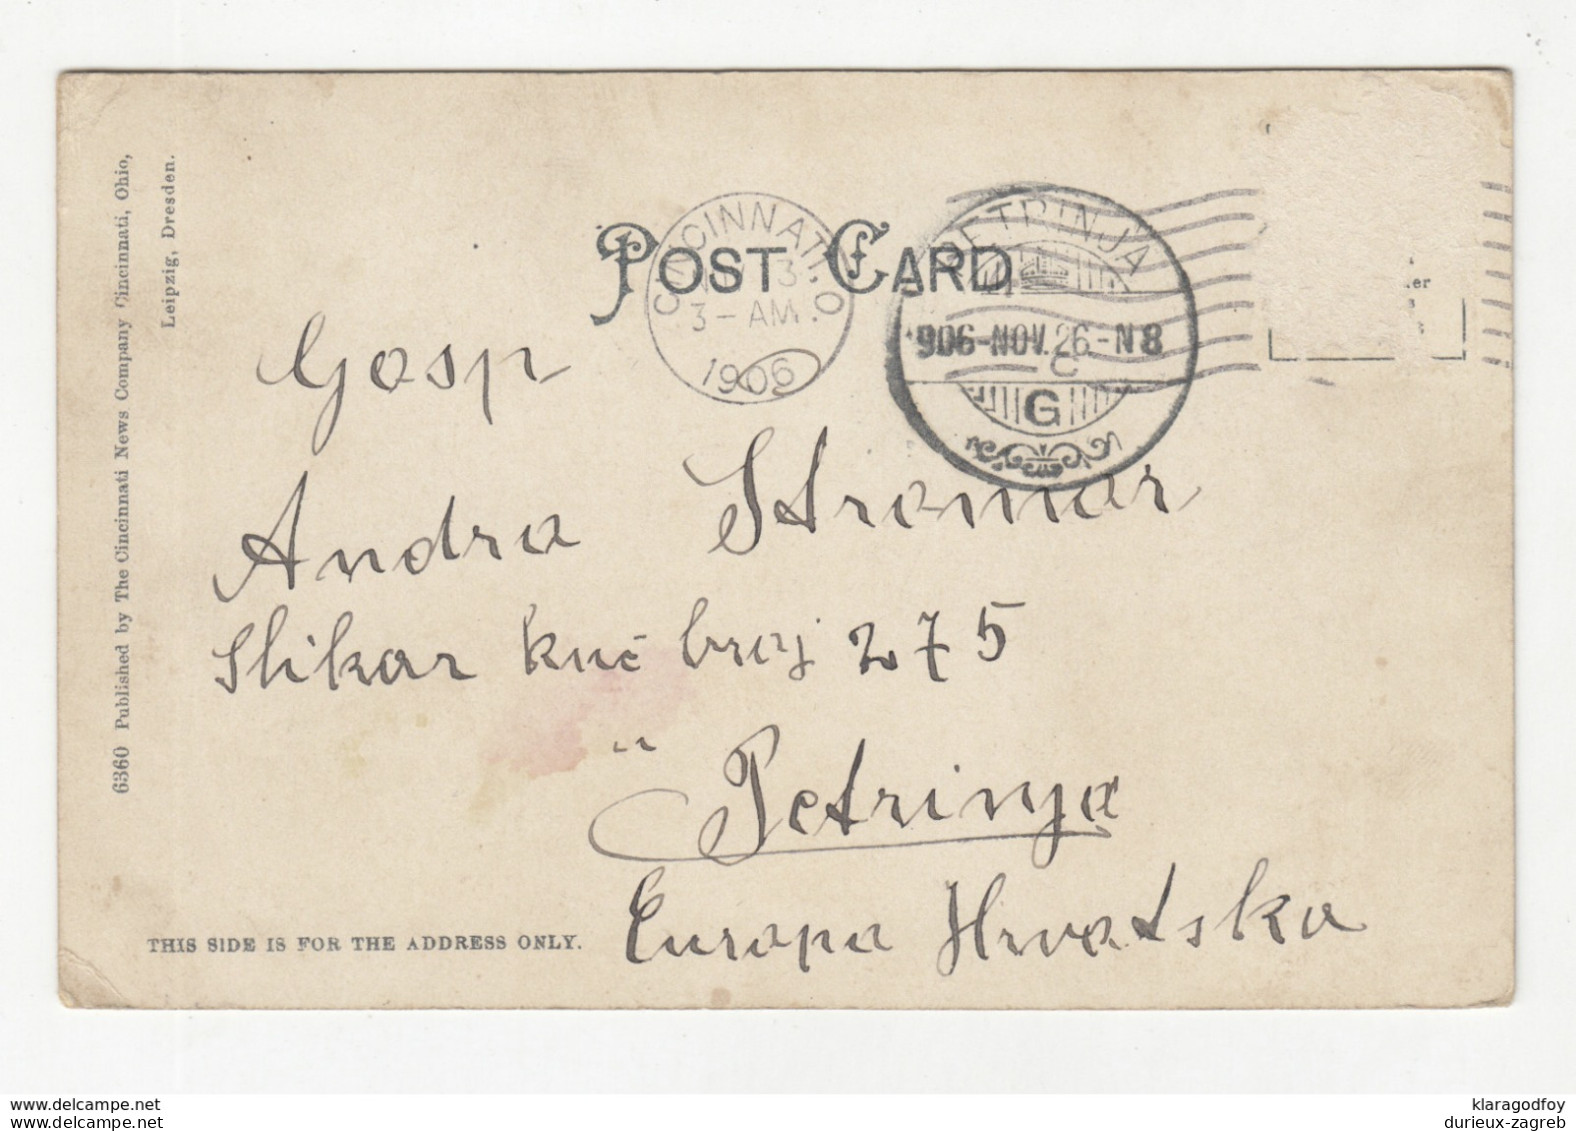 6360 Published by The Cincinnati News Company Cincinnati, Ohio,
Leipzig, Dresden.
POST CARD
CINCINNATI, O
3-AM
1906
PETRINJA
906-NOV.26-N8
C
G
Gosp
Andro Stromar
Slikar kuč broj 275
" Petrinja
Europa Hrvatska
THIS SIDE IS FOR THE ADDRESS ONLY.
My own work
klaragodfoy
durieux-zagreb